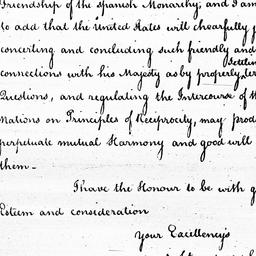 Friendship of the Spanish Monarchy; and I am
to add that the United States will chearfully
concerting and concluding such friendly and
settlin
connections with his Majesty as by properly
Questions, and regulating the Intercourse of
Nations on Principles of Reciprocity, may prod
perpetuate mutual Harmony and good will
them -
I have the Honour to be with g
Esteem and consideration
Your Excellency's